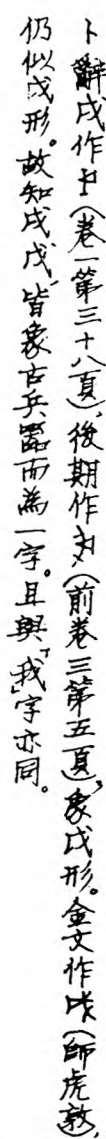 卜辭戌作(卷一第三十八頁),後期作(前卷三第五頁),象戉形。金文作(師虎敦),
仍似戉形。故知戌戊,皆象古兵器而為一字。且與「我」字亦同。